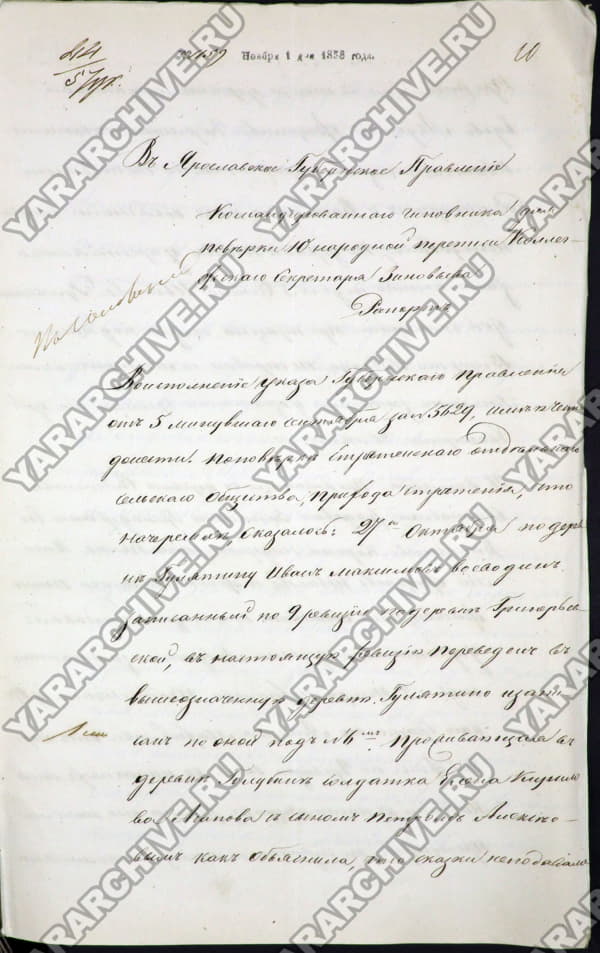 Ноября 1 дня 1858 года.
10
Въ Ярославское Губернское Правленіе
Командированнаго чиновника для
повѣрки 10 народной переписи Коллеж
скаго Секретаря Зиновьева
Рапортъ
Во исполненіе указа Губернскаго Правленія
отъ 5 минувшаго Сентября за № 5629, имѣю честь
донести. По повѣркѣ Стрѣтенскаго
сельскаго общества, прихода Стрѣтенія, что
оказалось: 27го Октября по дерев
нѣ Гулятину Иванъ Максимовъ
записанный по 9 ревизіи по деревнѣ Григорьев
ской, въ настоящую ревизію переведенъ въ
вышеозначенную деревню Гулятино и запи
санъ по оной подъ № Проживающая въ
деревнѣ Голубкинѣ солдатка Елена Кирило
ва съ сыномъ Петромъ Алексѣе
вымъ какъ объяснила, что сказки не подавала
YARARCHIVE.RU